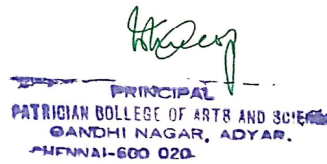 PRINCIPAL
PATRICIAN BOLLEGE OF ARTS AND SCIENCE
GANDHI NAGAR, ADYAR.
CHENNAI-600 020.